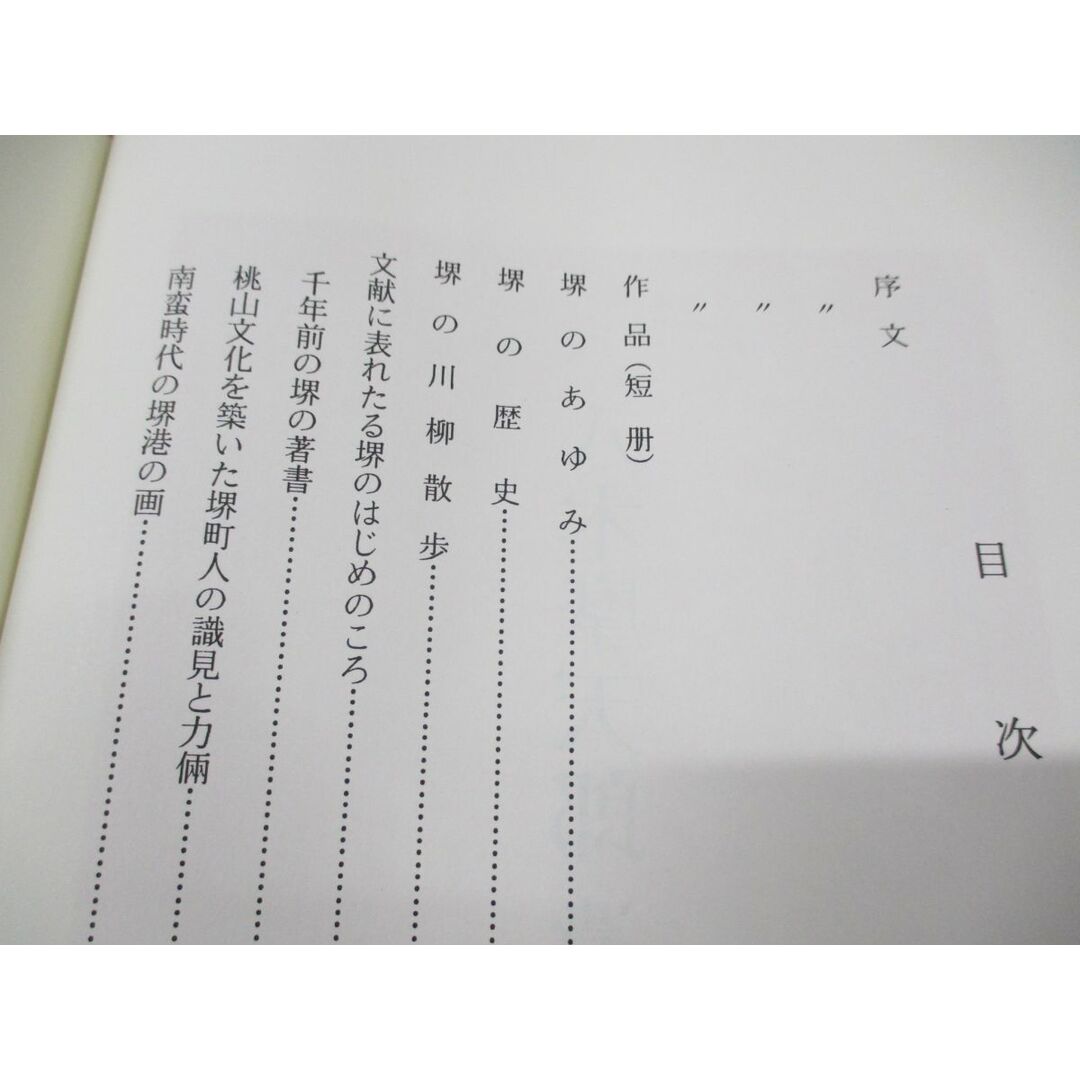 目次
序文
〃
〃
〃
作品(短冊)
堺のあゆみ
堺の歴史
堺の川柳散歩
文献に表れたる堺のはじめのころ
千年前の堺の著書
桃山文化を築いた堺町人の識見と力倆
南蛮時代の堺港の画